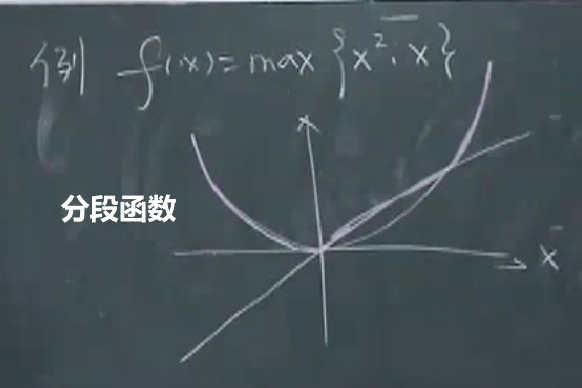 例 f(x)=max{x²,x}
分段函数
x